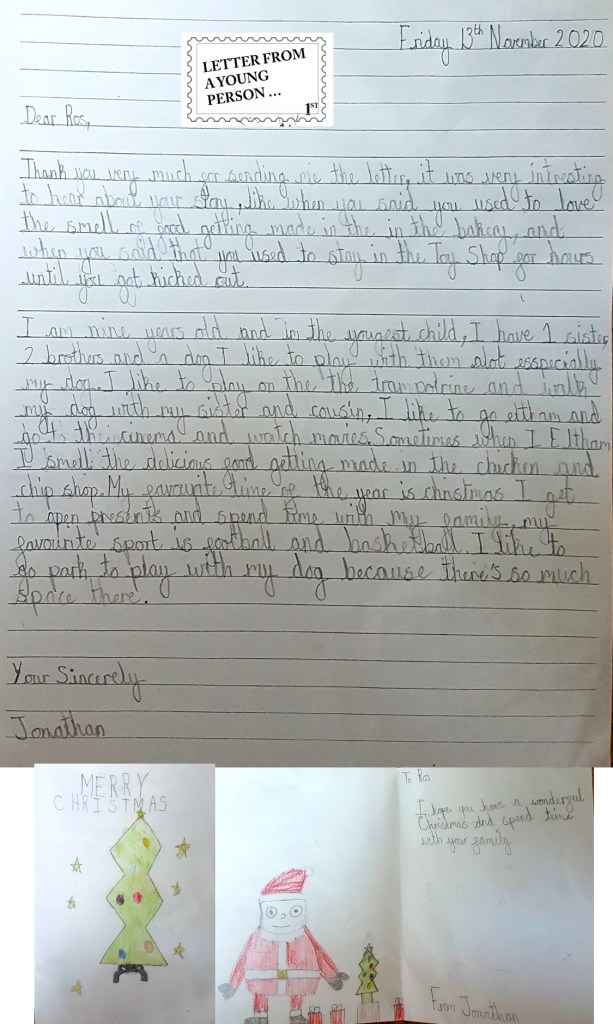 Friday 13th November 2020
LETTER FROM
A YOUNG
PERSON ...
1ST
Dear Ros,
Thank you very much for sending me the letter, it was very intresting
to hear about your stay, like when you said you used to love
the smell of food getting made in the in the bakery, and
when you said that you used to stay in the Toy Shop for hours
until you got kicked out.
I am nine years old and im the yougest child, I have 1 sister,
2 brothers and a dog I like to play with them alot esspecially
my dog. I like to play on the the trampolrine and walk
my dog with my sister and cousin, I like to go eltham and
go to the cinema and watch movies. Sometimes when I Eltham
I smell the delicious food getting made in the chicken and
chip shop. My favourite time of the year is christmas I get
to open presents and spend time with my family, my
favourite sport is football and basketball. I like to
go park to play with my dog because there's so much
space there.
Your Sincerely
Jonathan
MERRY
CHRISTMAS
To Ros
I hope you have a wonderful
Christmas and spend time
with your family
From Jonathan